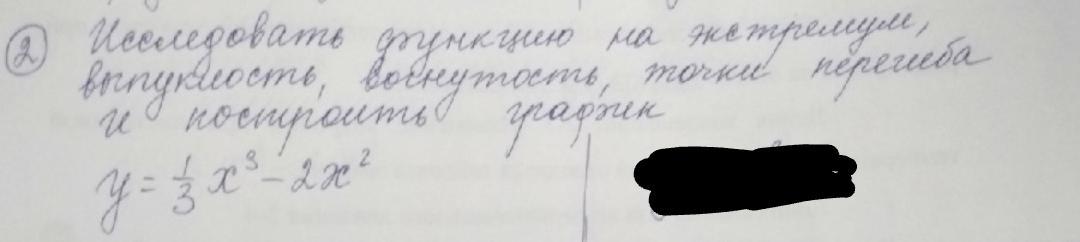 2 Исследовать функцию на экстремум,
выпуклость, вогнутость, точки перегиба
и построить график
y = 1/3 x³ - 2x²